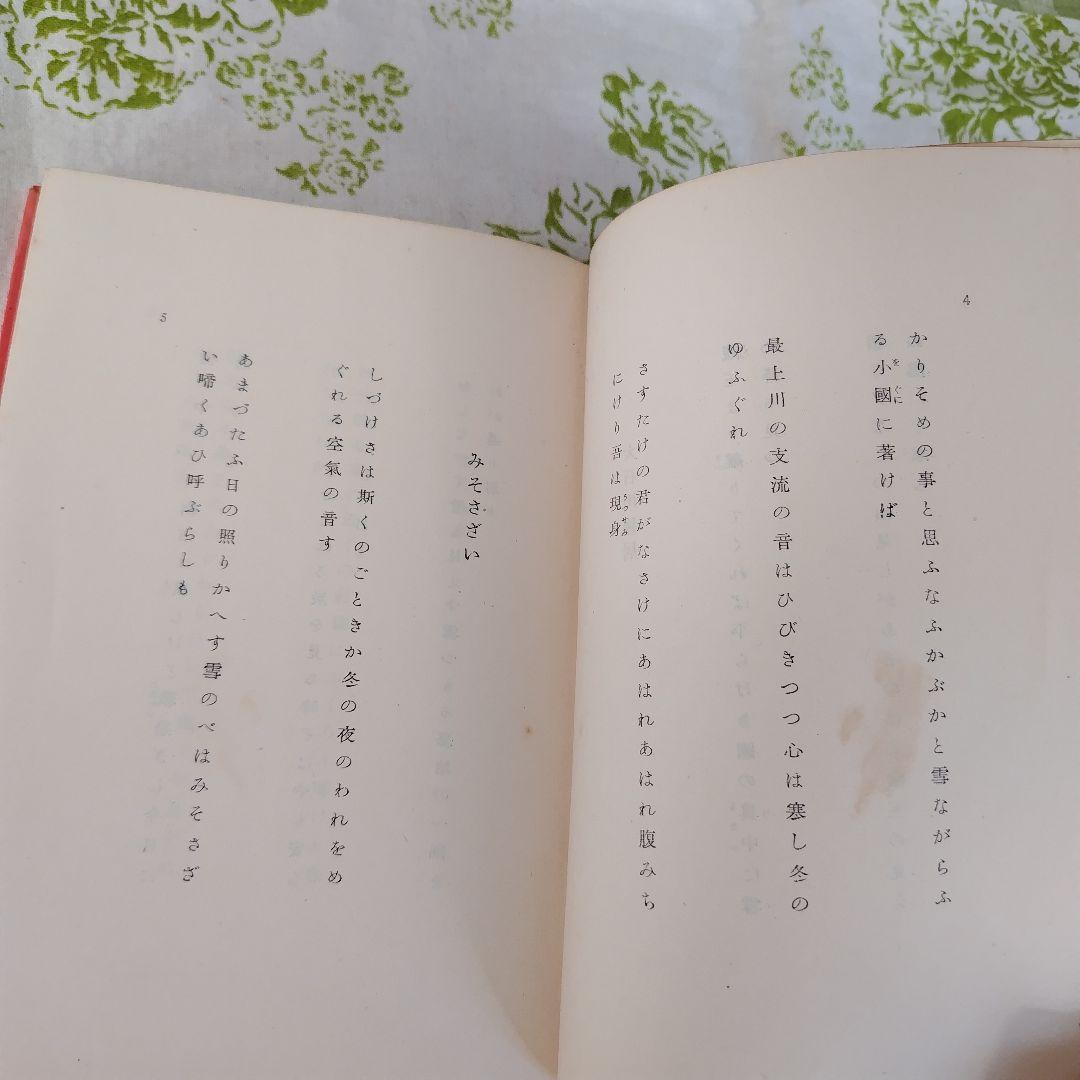 4
かりそめの事と思ふなふかぶかと雪ながらふ
る小國に著けば
をぐに
最上川の支流の音はひびきつつ心は寒し冬の
ゆふぐれ
さすたけの君がなさけにあはれあはれ腹みち
にけり吾は現身
うつせみ
みそさざい
しづけさは斯くのごときか冬の夜のわれをめ
ぐれる空氣の音す
あまづたふ日の照りかへす雪のべはみそさざ
い啼くあひ呼ぶらしも
5